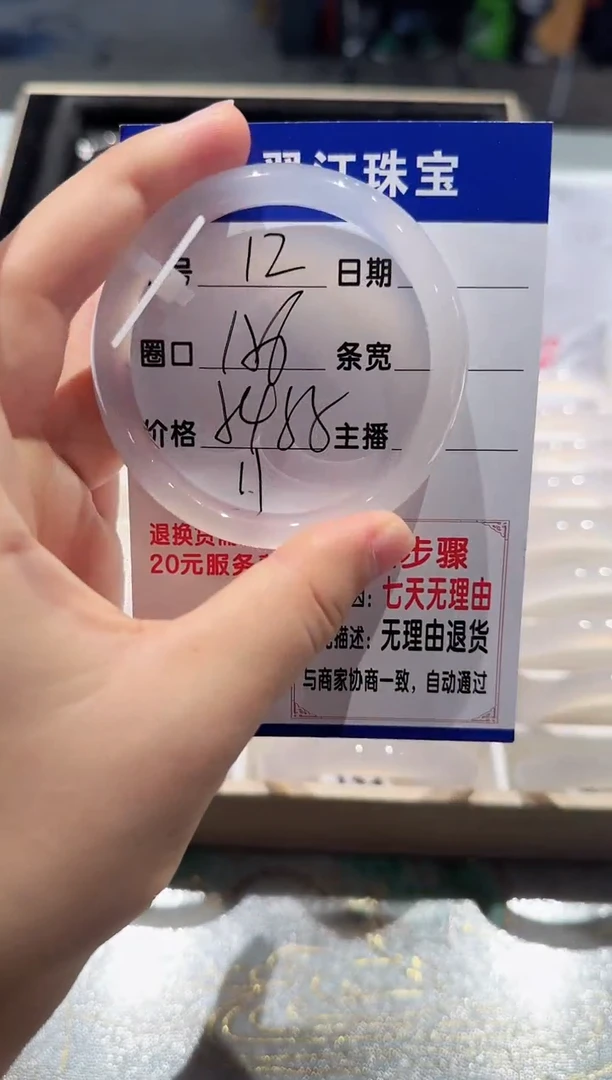 江珠宝
号 12 日期
圈口 186 条宽
价格 8488 主播
11
退换货
20元服务
步骤
因：七天无理由
描述：无理由退货
与商家协商一致，自动通过